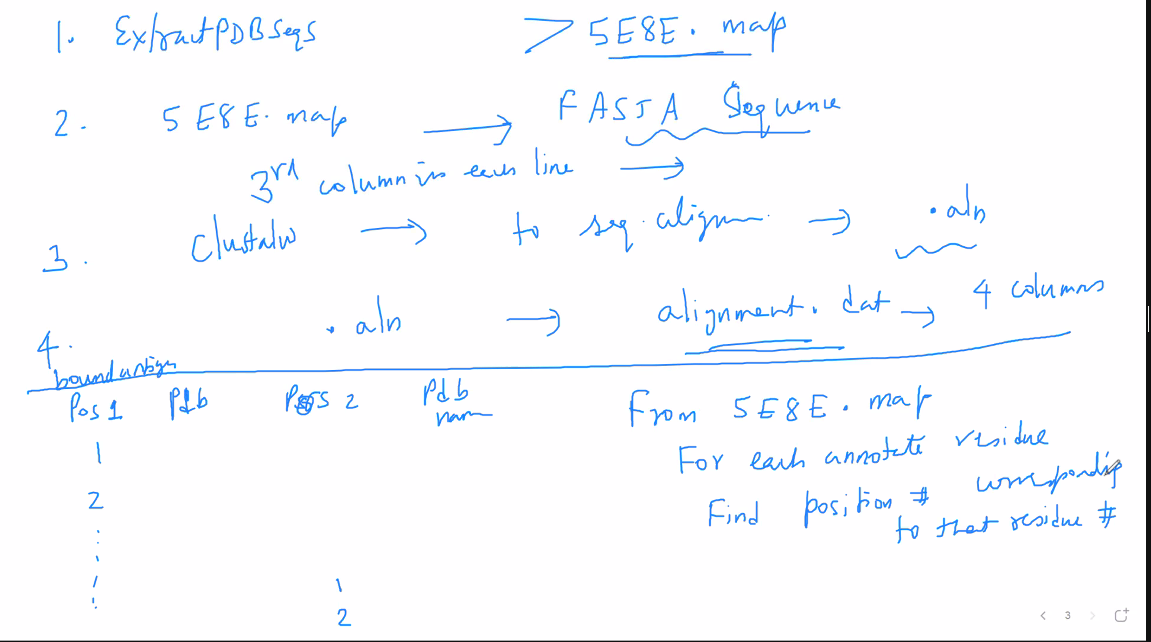 1. ExtractPDBSeqs > 5E8E.map
2. 5E8E.map → FASTA Sequence
3rd column in each line →
3. Clustalw → to seq. align → .aln
4. .aln → alignment.dat → 4 columns
Pos 1 Pdb Pos 2 Pdb nam
From 5E8E.map
1
For each annotate residue
2
Find position # corresponding
to that residue #
1
2
3